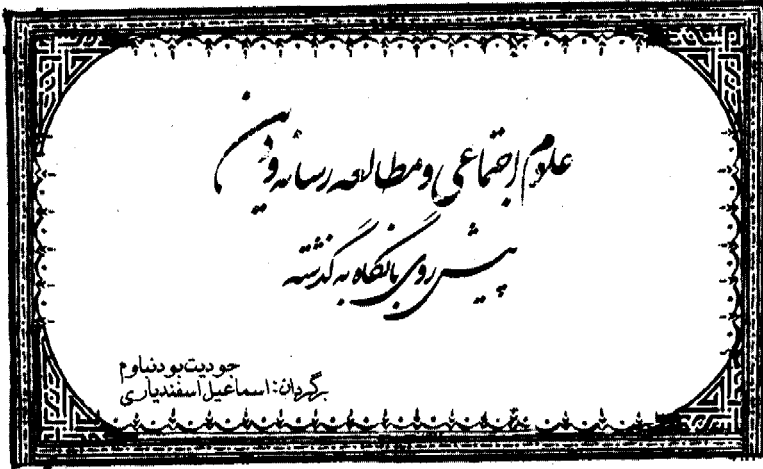 علوم اجتماعی و مطالعه رسانه و دین
پیش روی با نگاه به گذشته
جودیت بودنباوم
برگردان: اسماعیل اسفندیاری